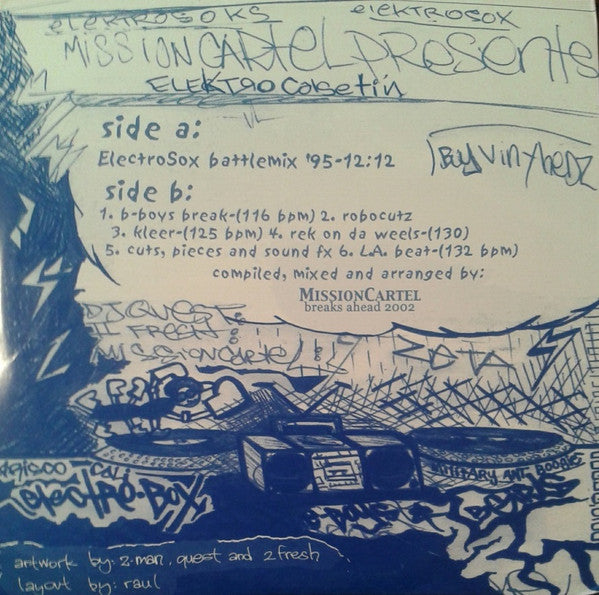 elektrosoks
elektrosox
MISSIONCARTEL PRESENTS
ELEKTRO
side a:
ElectroSox battlemix '95-12:12
side b:
1. b-boys break-(116 bpm) 2. robocutz
3. kleer-(125 bpm) 4. rek on da weels-(130)
5. cuts, pieces and sound fx 6. L.A. beat-(132 bpm)
compiled, mixed and arranged by:
MISSIONCARTEL
breaks ahead 2002
DJ QUEST
II FRESH
MISSIONCARTEL
electro-box
MILITARY ANT BOOGIE
artwork by: z-man, quest and 2fresh
layout by: raul